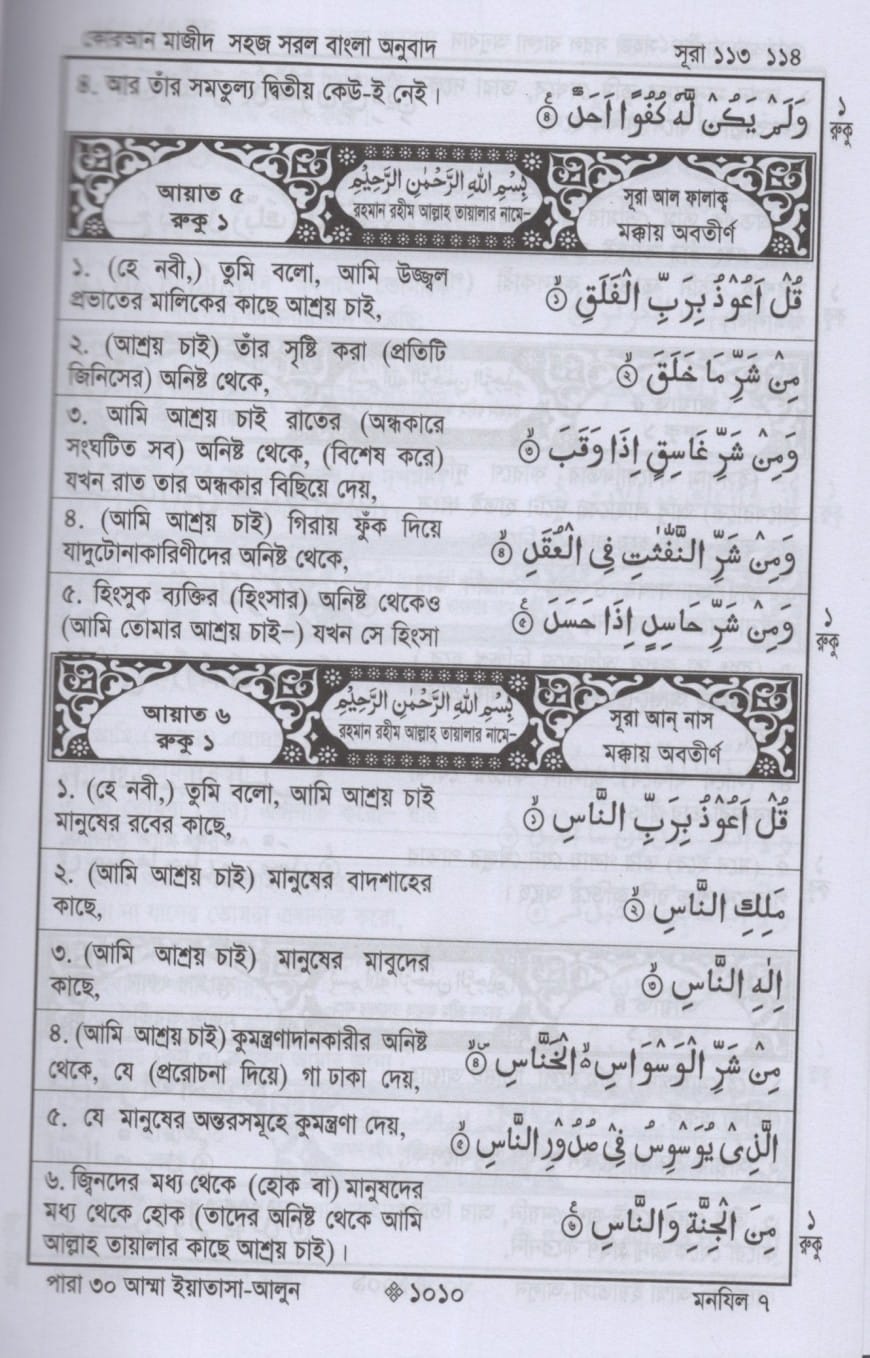 কোরআন মাজীদ সহজ সরল বাংলা অনুবাদ
সূরা ১১৩ ১১৪
৪. আর তাঁর সমতুল্য দ্বিতীয় কেউ-ই নেই।
وَلَمْ يَكُنْ لَّهٗ كُفُوًا اَحَدٌ ﴿٤﴾
১
রুকু
আয়াত ৫
রুকু ১
بِسْمِ اللهِ الرَّحْمٰنِ الرَّحِيْمِ
রহমান রহীম আল্লাহ তায়ালার নামে-
সূরা আল ফালাক্ব
মক্কায় অবতীর্ণ
১. (হে নবী,) তুমি বলো, আমি উজ্জ্বল
প্রভাতের মালিকের কাছে আশ্রয় চাই,
قُلْ اَعُوْذُ بِرَبِّ الْفَلَقِ ﴿١﴾
২. (আশ্রয় চাই) তাঁর সৃষ্টি করা (প্রতিটি
জিনিসের) অনিষ্ট থেকে,
مِنْ شَرِّ مَا خَلَقَ ﴿٢﴾
৩. আমি আশ্রয় চাই রাতের (অন্ধকারে
সংঘটিত সব) অনিষ্ট থেকে, (বিশেষ করে)
যখন রাত তার অন্ধকার বিছিয়ে দেয়,
وَمِنْ شَرِّ غَاسِقٍ اِذَا وَقَبَ ﴿٣﴾
৪. (আমি আশ্রয় চাই) গিরায় ফুঁক দিয়ে
যাদুটোনাকারিণীদের অনিষ্ট থেকে,
وَمِنْ شَرِّ النَّفّٰثٰتِ فِى الْعُقَدِ ﴿٤﴾
৫. হিংসুক ব্যক্তির (হিংসার) অনিষ্ট থেকেও
(আমি তোমার আশ্রয় চাই-) যখন সে হিংসা
وَمِنْ شَرِّ حَاسِدٍ اِذَا حَسَدَ ﴿٥﴾
১
রুকু
আয়াত ৬
রুকু ১
بِسْمِ اللهِ الرَّحْمٰنِ الرَّحِيْمِ
রহমান রহীম আল্লাহ তায়ালার নামে-
সূরা আন্ নাস
মক্কায় অবতীর্ণ
১. (হে নবী,) তুমি বলো, আমি আশ্রয় চাই
মানুষের রবের কাছে,
قُلْ اَعُوْذُ بِرَبِّ النَّاسِ ﴿١﴾
২. (আমি আশ্রয় চাই) মানুষের বাদশাহের
কাছে,
مَلِكِ النَّاسِ ﴿٢﴾
৩. (আমি আশ্রয় চাই) মানুষের মাবুদের
কাছে,
اِلٰهِ النَّاسِ ﴿٣﴾
৪. (আমি আশ্রয় চাই) কুমন্ত্রণাদানকারীর অনিষ্ট
থেকে, যে (প্ররোচনা দিয়ে) গা ঢাকা দেয়,
مِنْ شَرِّ الْوَسْوَاسِ الْخَنَّاسِ ﴿٤﴾
৫. যে মানুষের অন্তরসমূহে কুমন্ত্রণা দেয়,
الَّذِىْ يُوَسْوِسُ فِىْ صُدُوْرِ النَّاسِ ﴿٥﴾
৬. জ্বিনদের মধ্য থেকে (হোক বা) মানুষদের
মধ্য থেকে হোক (তাদের অনিষ্ট থেকে আমি
আল্লাহ তায়ালার কাছে আশ্রয় চাই)।
مِنَ الْجِنَّةِ وَالنَّاسِ ﴿٦﴾
১
রুকু
পারা ৩০ আম্মা ইয়াতাসা-আলুন
১০১০
মনযিল ৭